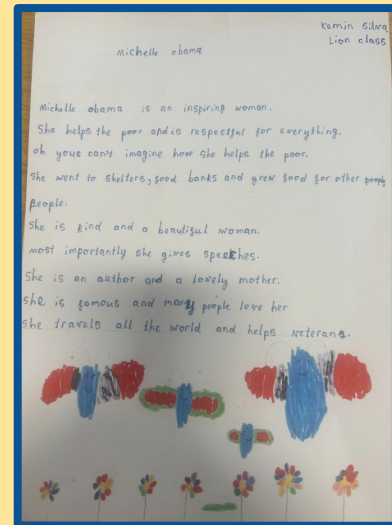 Kemin Silva
Lion class
Michelle obama
Michelle obama is an inspiring woman.
She helps the poor and is respectful for everything.
oh youe can't imagine how she helps the poor.
She went to shelters, food banks and grew food for other
people.
She is kind and a beautiful woman.
most importantly she gives speeches.
She is an author and a lovely mother.
she is famous and many people love her
she travels all the world and helps veterans.